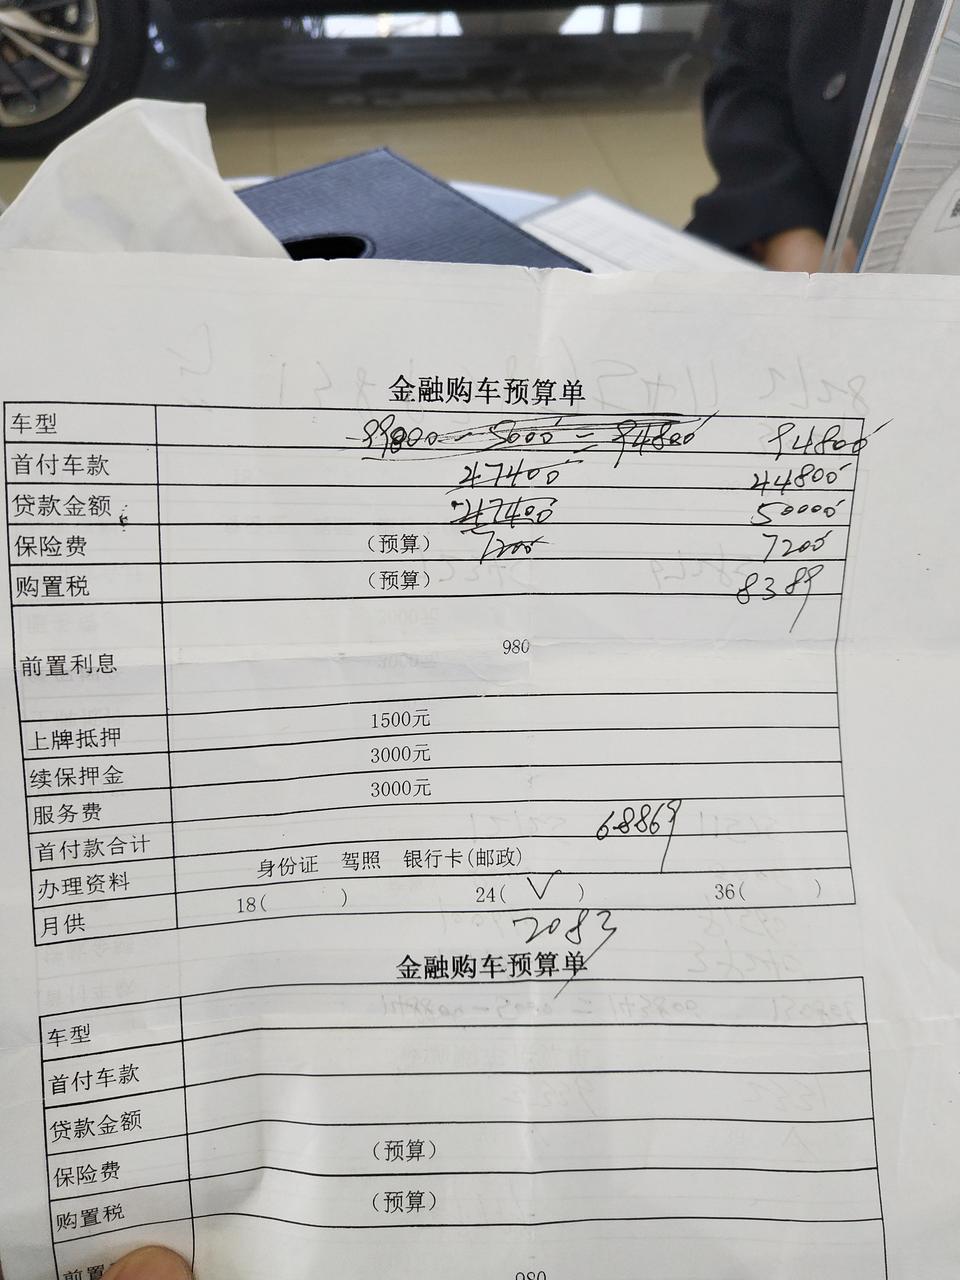 金融购车预算单
车型 99800-5000=94800 94800
首付车款 47400 44800
贷款金额 47400 50000
保险费 （预算） 7200 7200
购置税 （预算） 8389
前置利息 980
上牌抵押 1500元
续保押金 3000元
服务费 3000元
首付款合计 68869
办理资料 身份证 驾照 银行卡(邮政)
月供 18( ) 24( √ ) 36( )
2083
金融购车预算单
车型
首付车款
贷款金额
保险费 （预算）
购置税 （预算）
前置 980